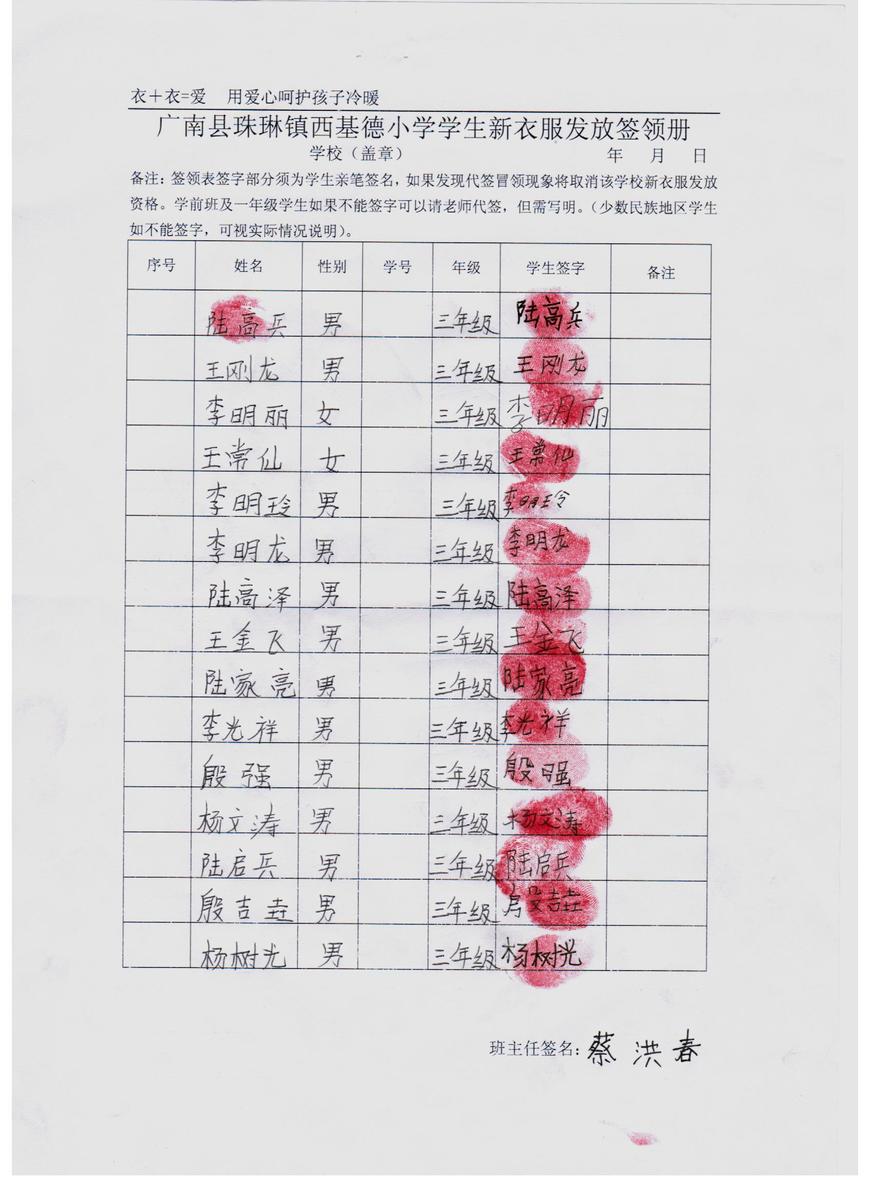 衣+衣=爱 用爱心呵护孩子冷暖
广南县珠琳镇西基德小学学生新衣服发放签领册
学校（盖章） 年 月 日
备注：签领表签字部分须为学生亲笔签名，如果发现代签冒领现象将取消该学校新衣服发放
资格。学前班及一年级学生如果不能签字可以请老师代签，但需写明。（少数民族地区学生
如不能签字，可视实际情况说明）。
序号 姓名 性别 学号 年级 学生签字 备注
陆高兵 男 三年级 陆高兵
王刚龙 男 三年级 王刚龙
李明丽 女 三年级 李明丽
王常仙 女 三年级 王常仙
李明玲 男 三年级 李明玲
李明龙 男 三年级 李明龙
陆高泽 男 三年级 陆高泽
王金飞 男 三年级 王金飞
陆家亮 男 三年级 陆家亮
李光祥 男 三年级 李光祥
殷强 男 三年级 殷强
杨文涛 男 三年级 杨文涛
陆启兵 男 三年级 陆启兵
殷吉垚 男 三年级 殷吉垚
杨树光 男 三年级 杨树光
班主任签名：蔡洪春